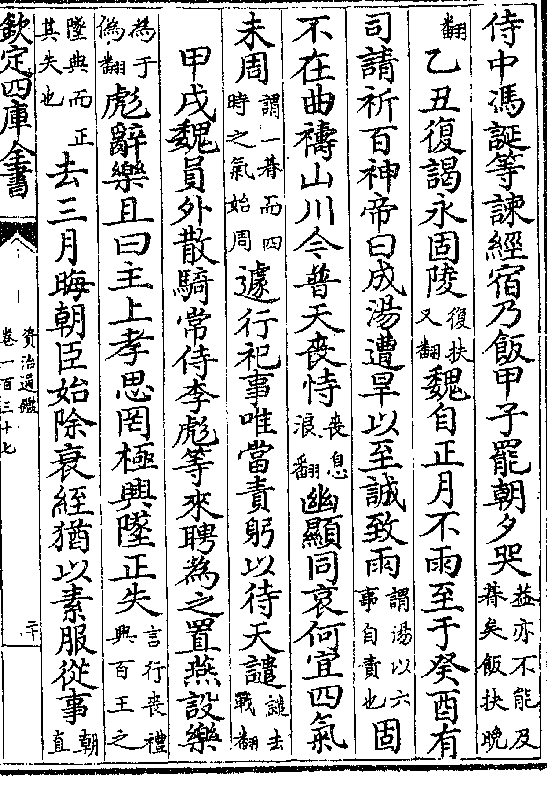 侍中馮誕等諫經宿乃飯甲子罷朝夕哭益亦不能及朞矣飯扶晚
翻乙丑復謁永固陵復扶又翻魏自正月不雨至于癸酉有
司請祈百神帝曰成湯遭旱以至誠致雨謂湯以六事自責也固
不在曲禱山川今普天喪恃喪息浪翻幽顯同哀何宜四氣
未周謂一朞而四時之氣始周遽行祀事唯當責躬以待天譴譴去戰翻
甲戌魏員外散騎常侍李彪等來聘為之置燕設樂
為于偽翻彪辭樂且曰主上孝思罔極興墜正失言行喪禮興百王之
墜典而正其失也去三月晦朝臣始除衰絰猶以素服從事朝直
欽定四庫全書
資治通鑑
卷一百三十七
二十